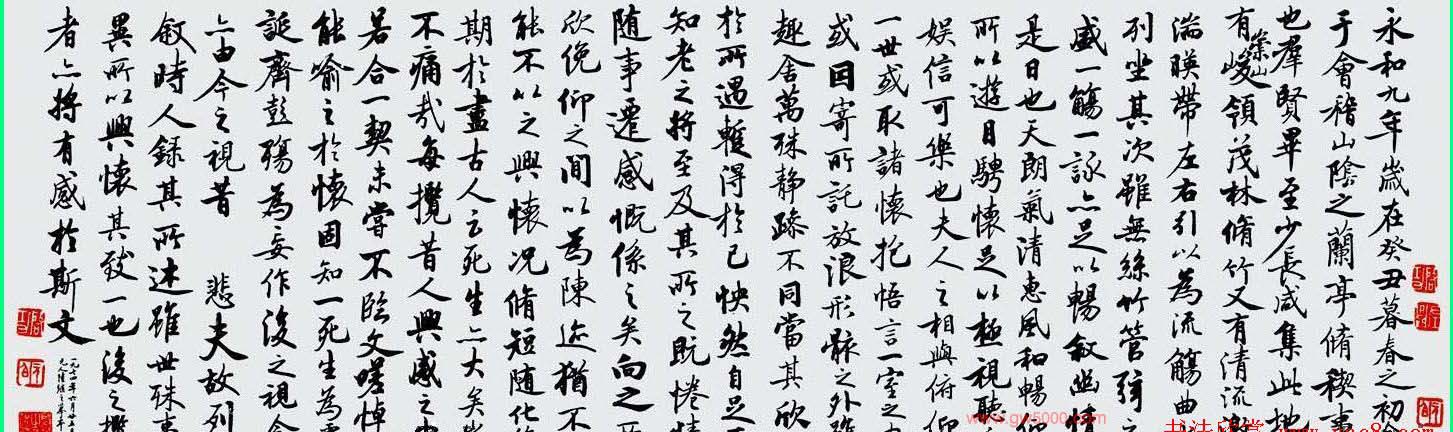 永和九年歲在癸丑暮春之初會
于會稽山陰之蘭亭脩稧事
也羣賢畢至少長咸集此地
有崇山峻領茂林脩竹又有清流激
湍暎帶左右引以為流觴曲
列坐其次雖無絲竹管弦之
盛一觴一詠亦足以暢敘幽情
是日也天朗氣清惠風和暢仰
所以遊目騁懷足以極視聽
娛信可樂也夫人之相與俯仰
一世或取諸懷抱悟言一室之內
或因寄所託放浪形骸之外雖
趣舍萬殊靜躁不同當其欣
於所遇暫得於己怏然自足不
知老之將至及其所之既惓情
隨事遷感慨係之矣向之所
欣俛仰之間以為陳迹猶不
能不以之興懷況脩短隨化
期於盡古人云死生亦大矣豈
不痛哉每攬昔人興感之由
若合一契未嘗不臨文嗟悼
能喻之於懷固知一死生為虛
誕齊彭殤為妄作後之視今
亦由今之視昔 悲夫故列
敘時人錄其所述雖世殊事
異所以興懷其致一也後之攬
者亦將有感於斯文
www.gw5000.com